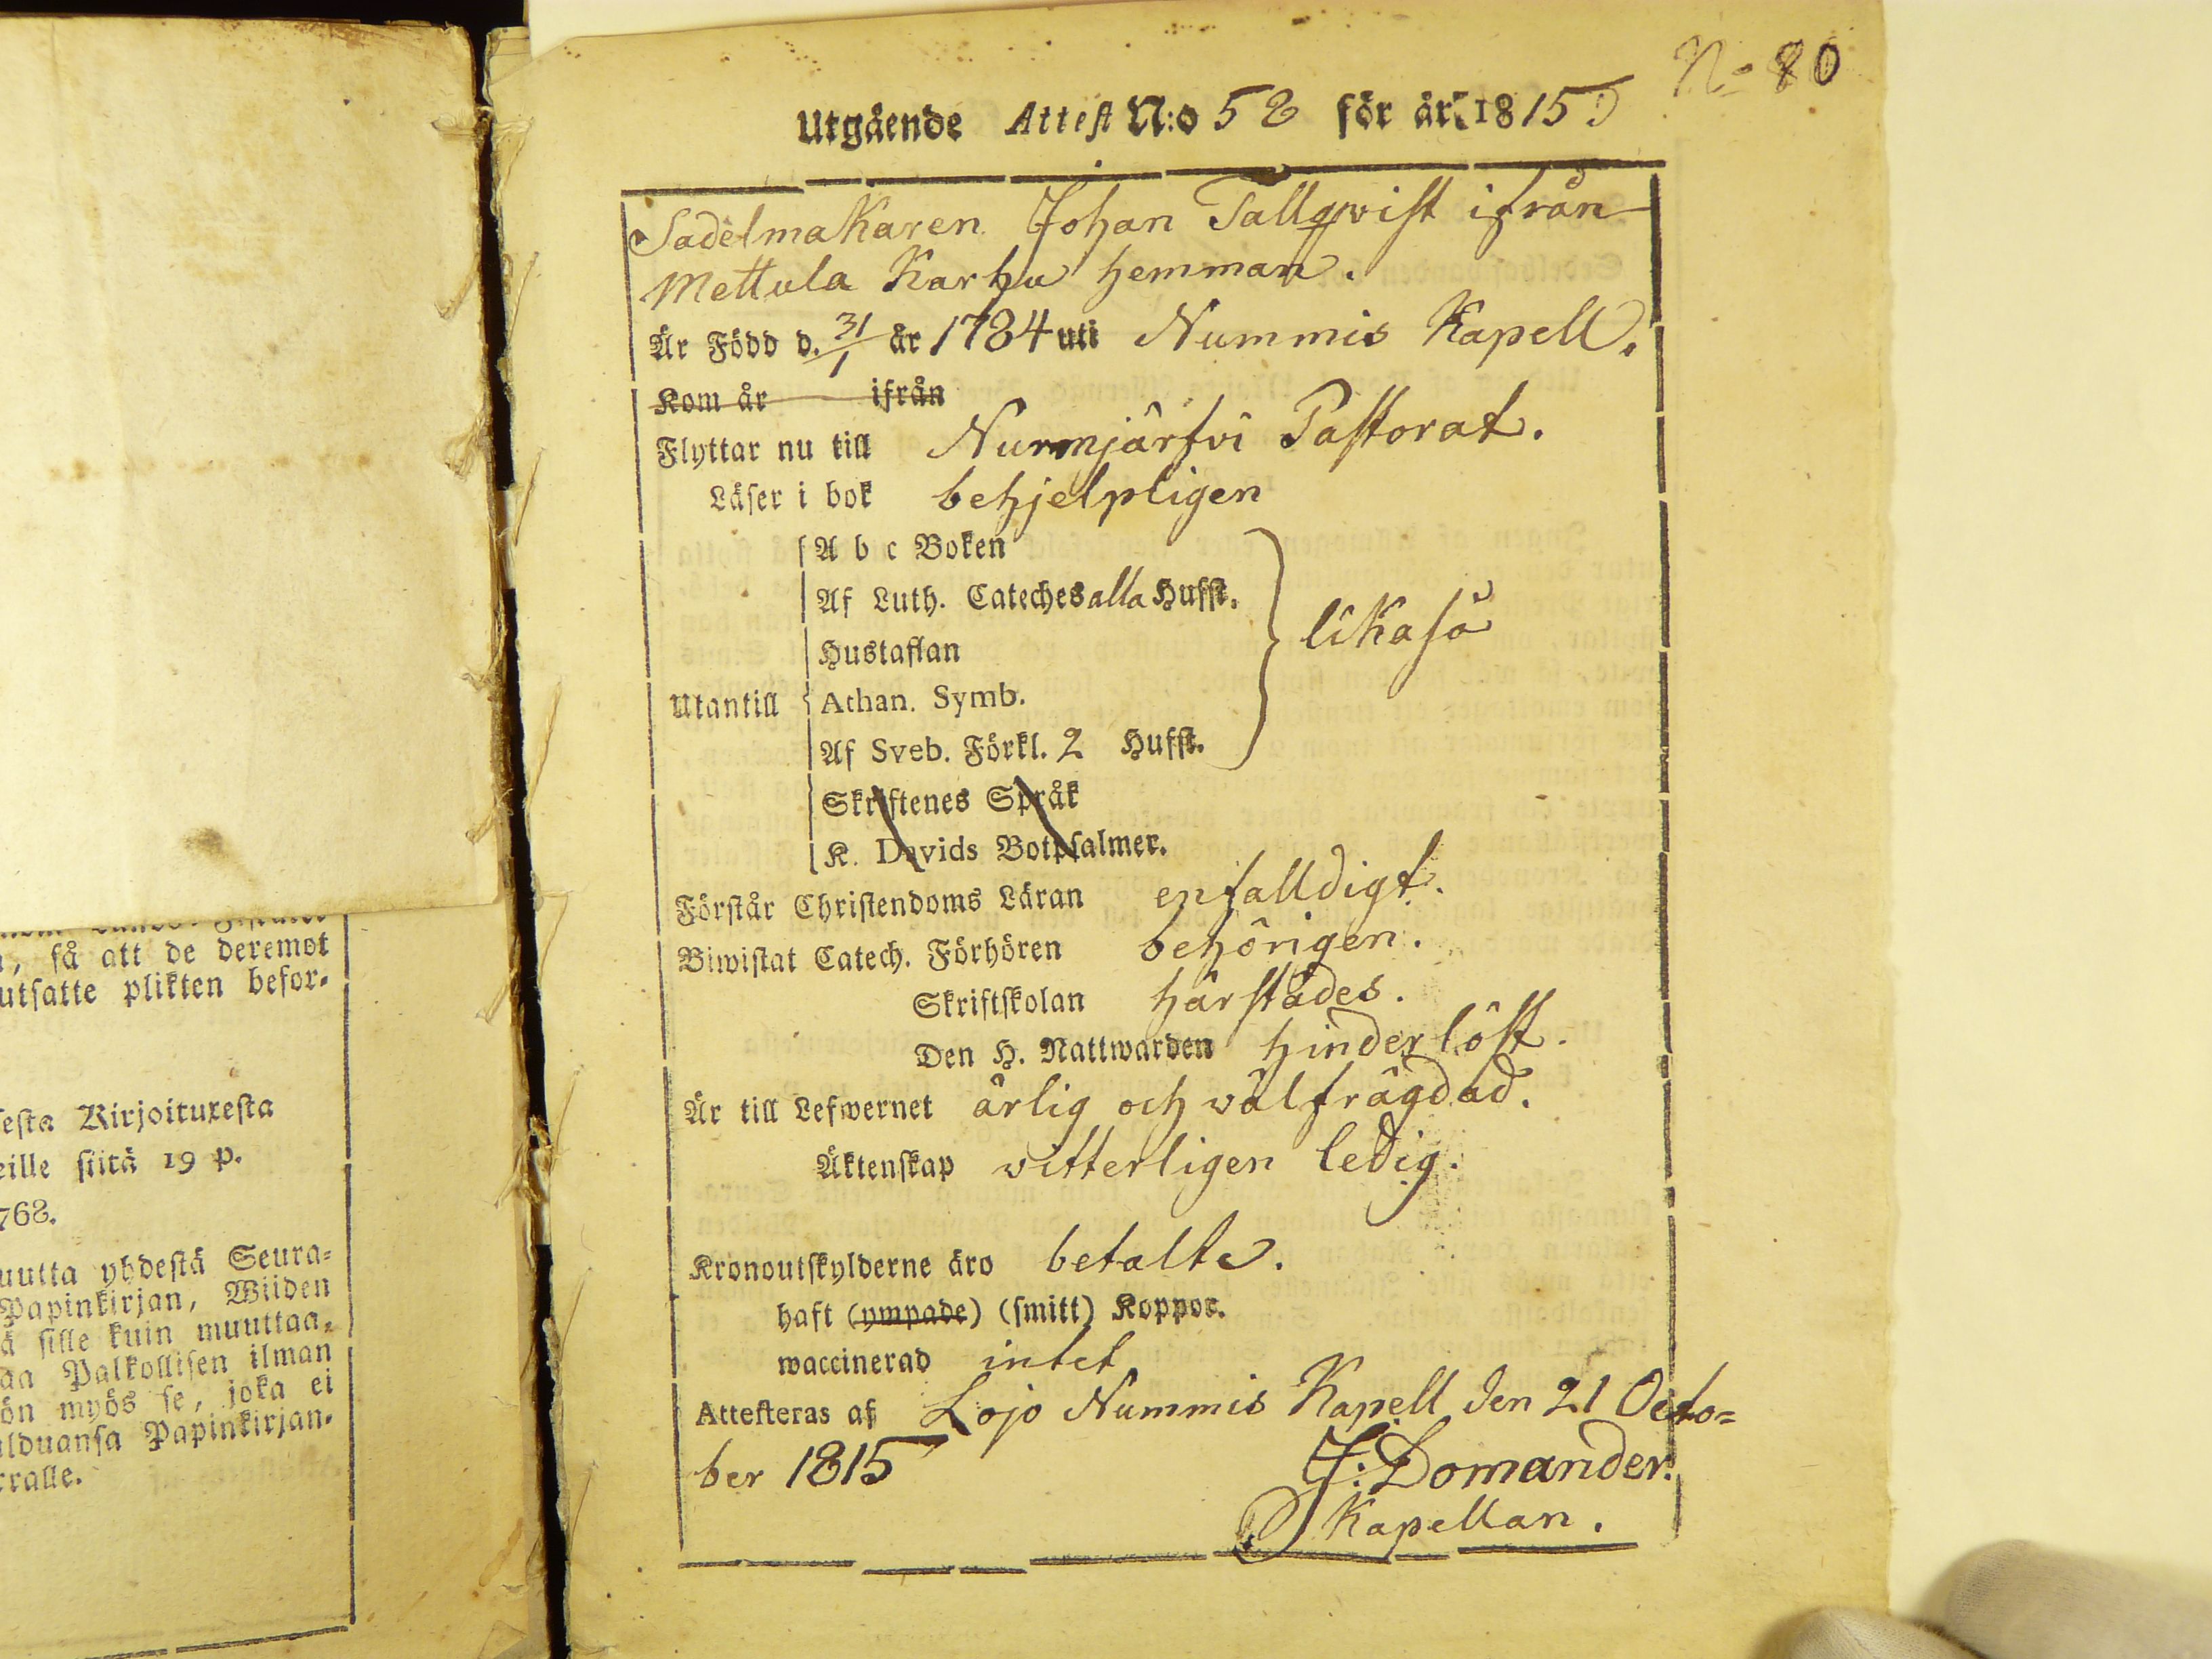 , så att de deremot
utsatte plikten befor-
esta Kirjoituxesta
eille siitä 19 p.
768.
uutta yhdestä Seura-
Papinkirjan, Wiiden
ä sille kuin muuttaa,
aa Palkollisen ilman
ön myös se, joka ei
lduansa Papinkirjan-
ralle.
No 80
Utgående Attest N:o 52 för år 1815
Sadelmakaren Johan Tallqwist ifrån
Mettula Karhu hemman.
Är Född d. 31/1 år 1784 uti Nummis Kapell.
Kom år ifrån
Flyttar nu till Nurmjärfvi Pastorat.
Läser i bok behjelpligen
A b c Boken
Af Luth. Cateches alla Hufst.
Hustaflan
likaså
Utantill Athan. Symb.
Af Sveb. Förkl. 2 Hufst.
Skriftenes Språk
K. Davids Botpsalmer.
Förstår Christendoms Läran enfalldigt.
Biwistat Catech. Förhören behörigen.
Skriftskolan härstädes.
Den H. Nattwarden hinderlöst.
Är till Lefwernet ärlig och välfrägdad.
Äktenskap vitterligen ledig.
Kronoutskylderne äro betalte.
haft (ympade) (smitt) Koppor.
waccinerad intet
Attesteras af Lojo Nummis Kapell den 21 Octo=
ber 1815
J: Domander.
Kapellan.